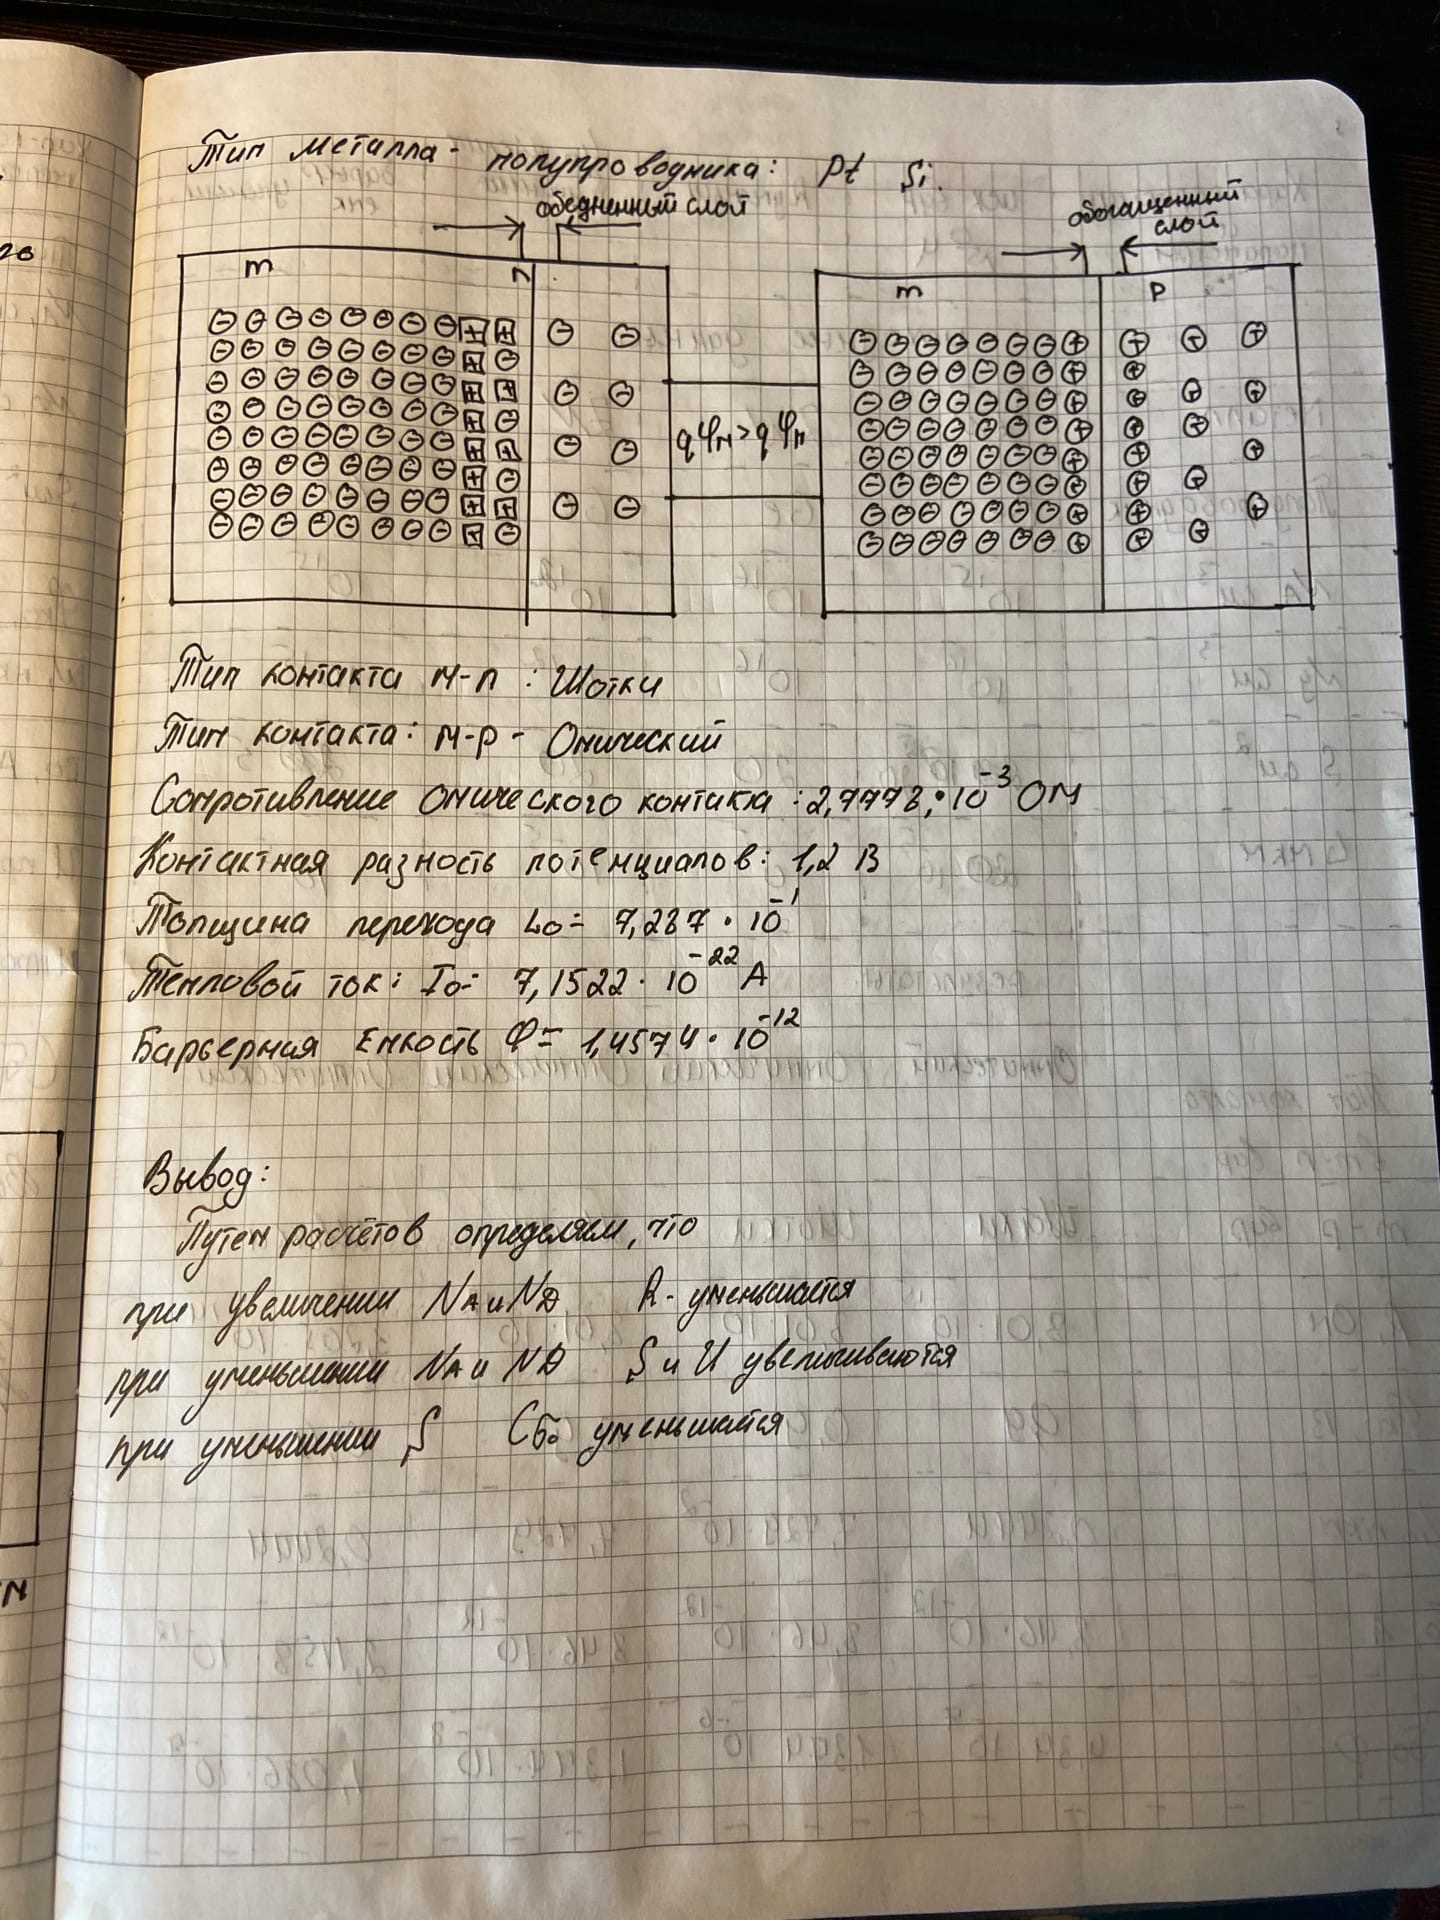 Тип металла - полупроводника: Pt Si.
обедненный слой
обогащенный слой
m n
m p
qφм > qφп
Тип контакта м-п : Шотки
Тип контакта: м-р - Омический
Сопротивление омического контакта : 2,7778 · 10⁻³ Ом
Контактная разность потенциалов: 1,2 В
Толщина перехода Lo = 7,287 · 10⁻¹
Тепловой ток: Io = 7,1522 · 10⁻²² А
Барьерная Емкость Ф = 1,4574 · 10⁻¹²
Вывод:
Путем расчётов определяем, что
при увеличении NA и NД R - уменьшается
при уменьшении NA и NД S и U увеличиваются
при уменьшении S Сбо уменьшается